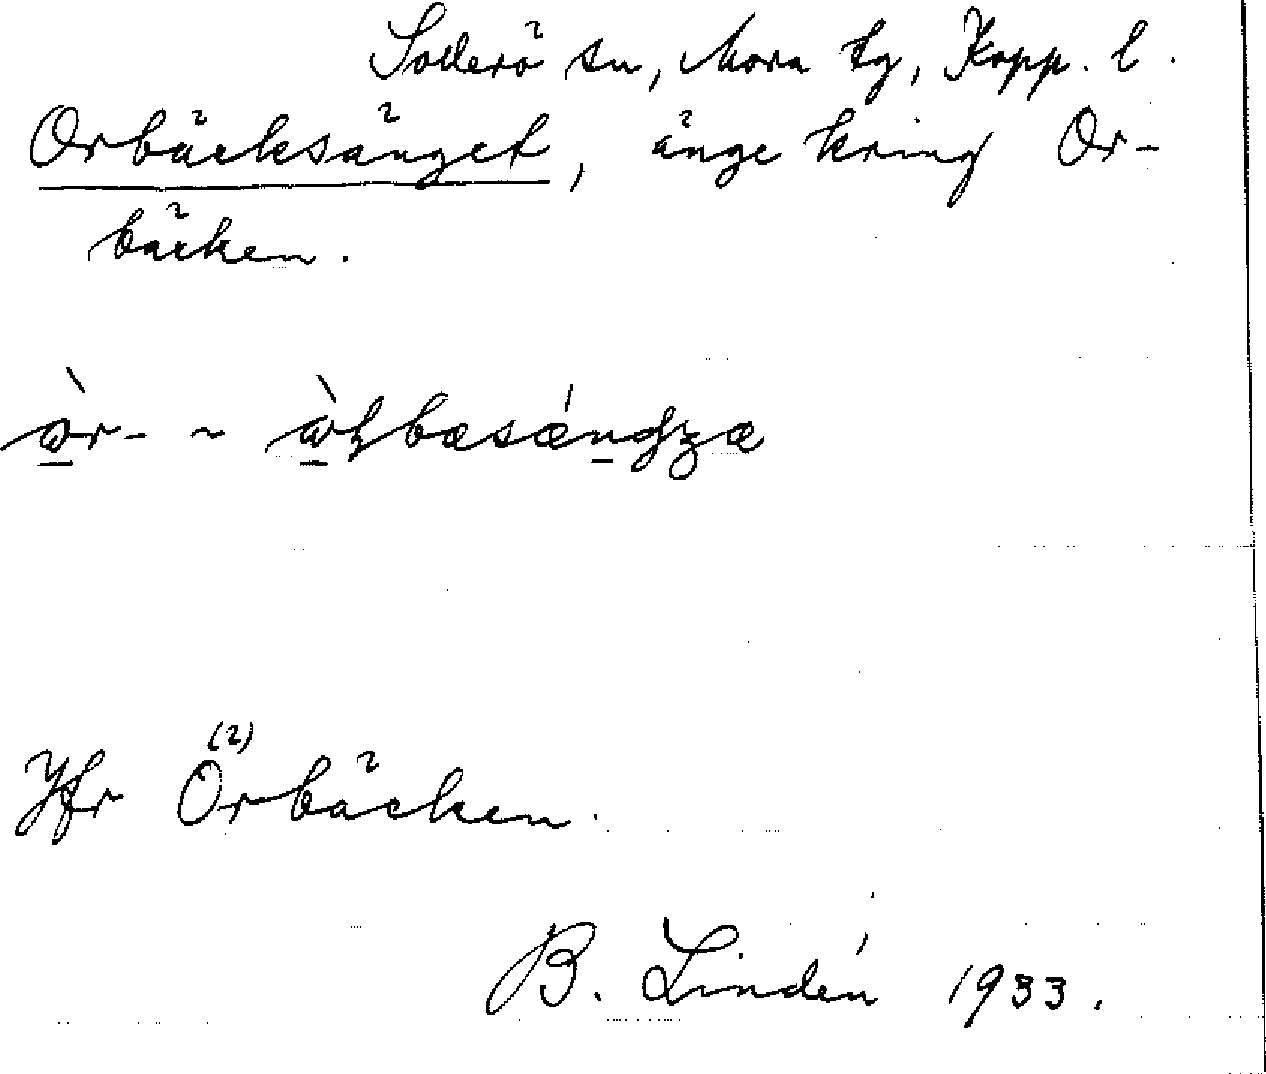 Sollerö sn, Mora tg, Kopp. l.
Orbäcksänget, änge kring Or-
bäcken.
Jfr Örbäcken.
(2)
B. Lindén 1933.